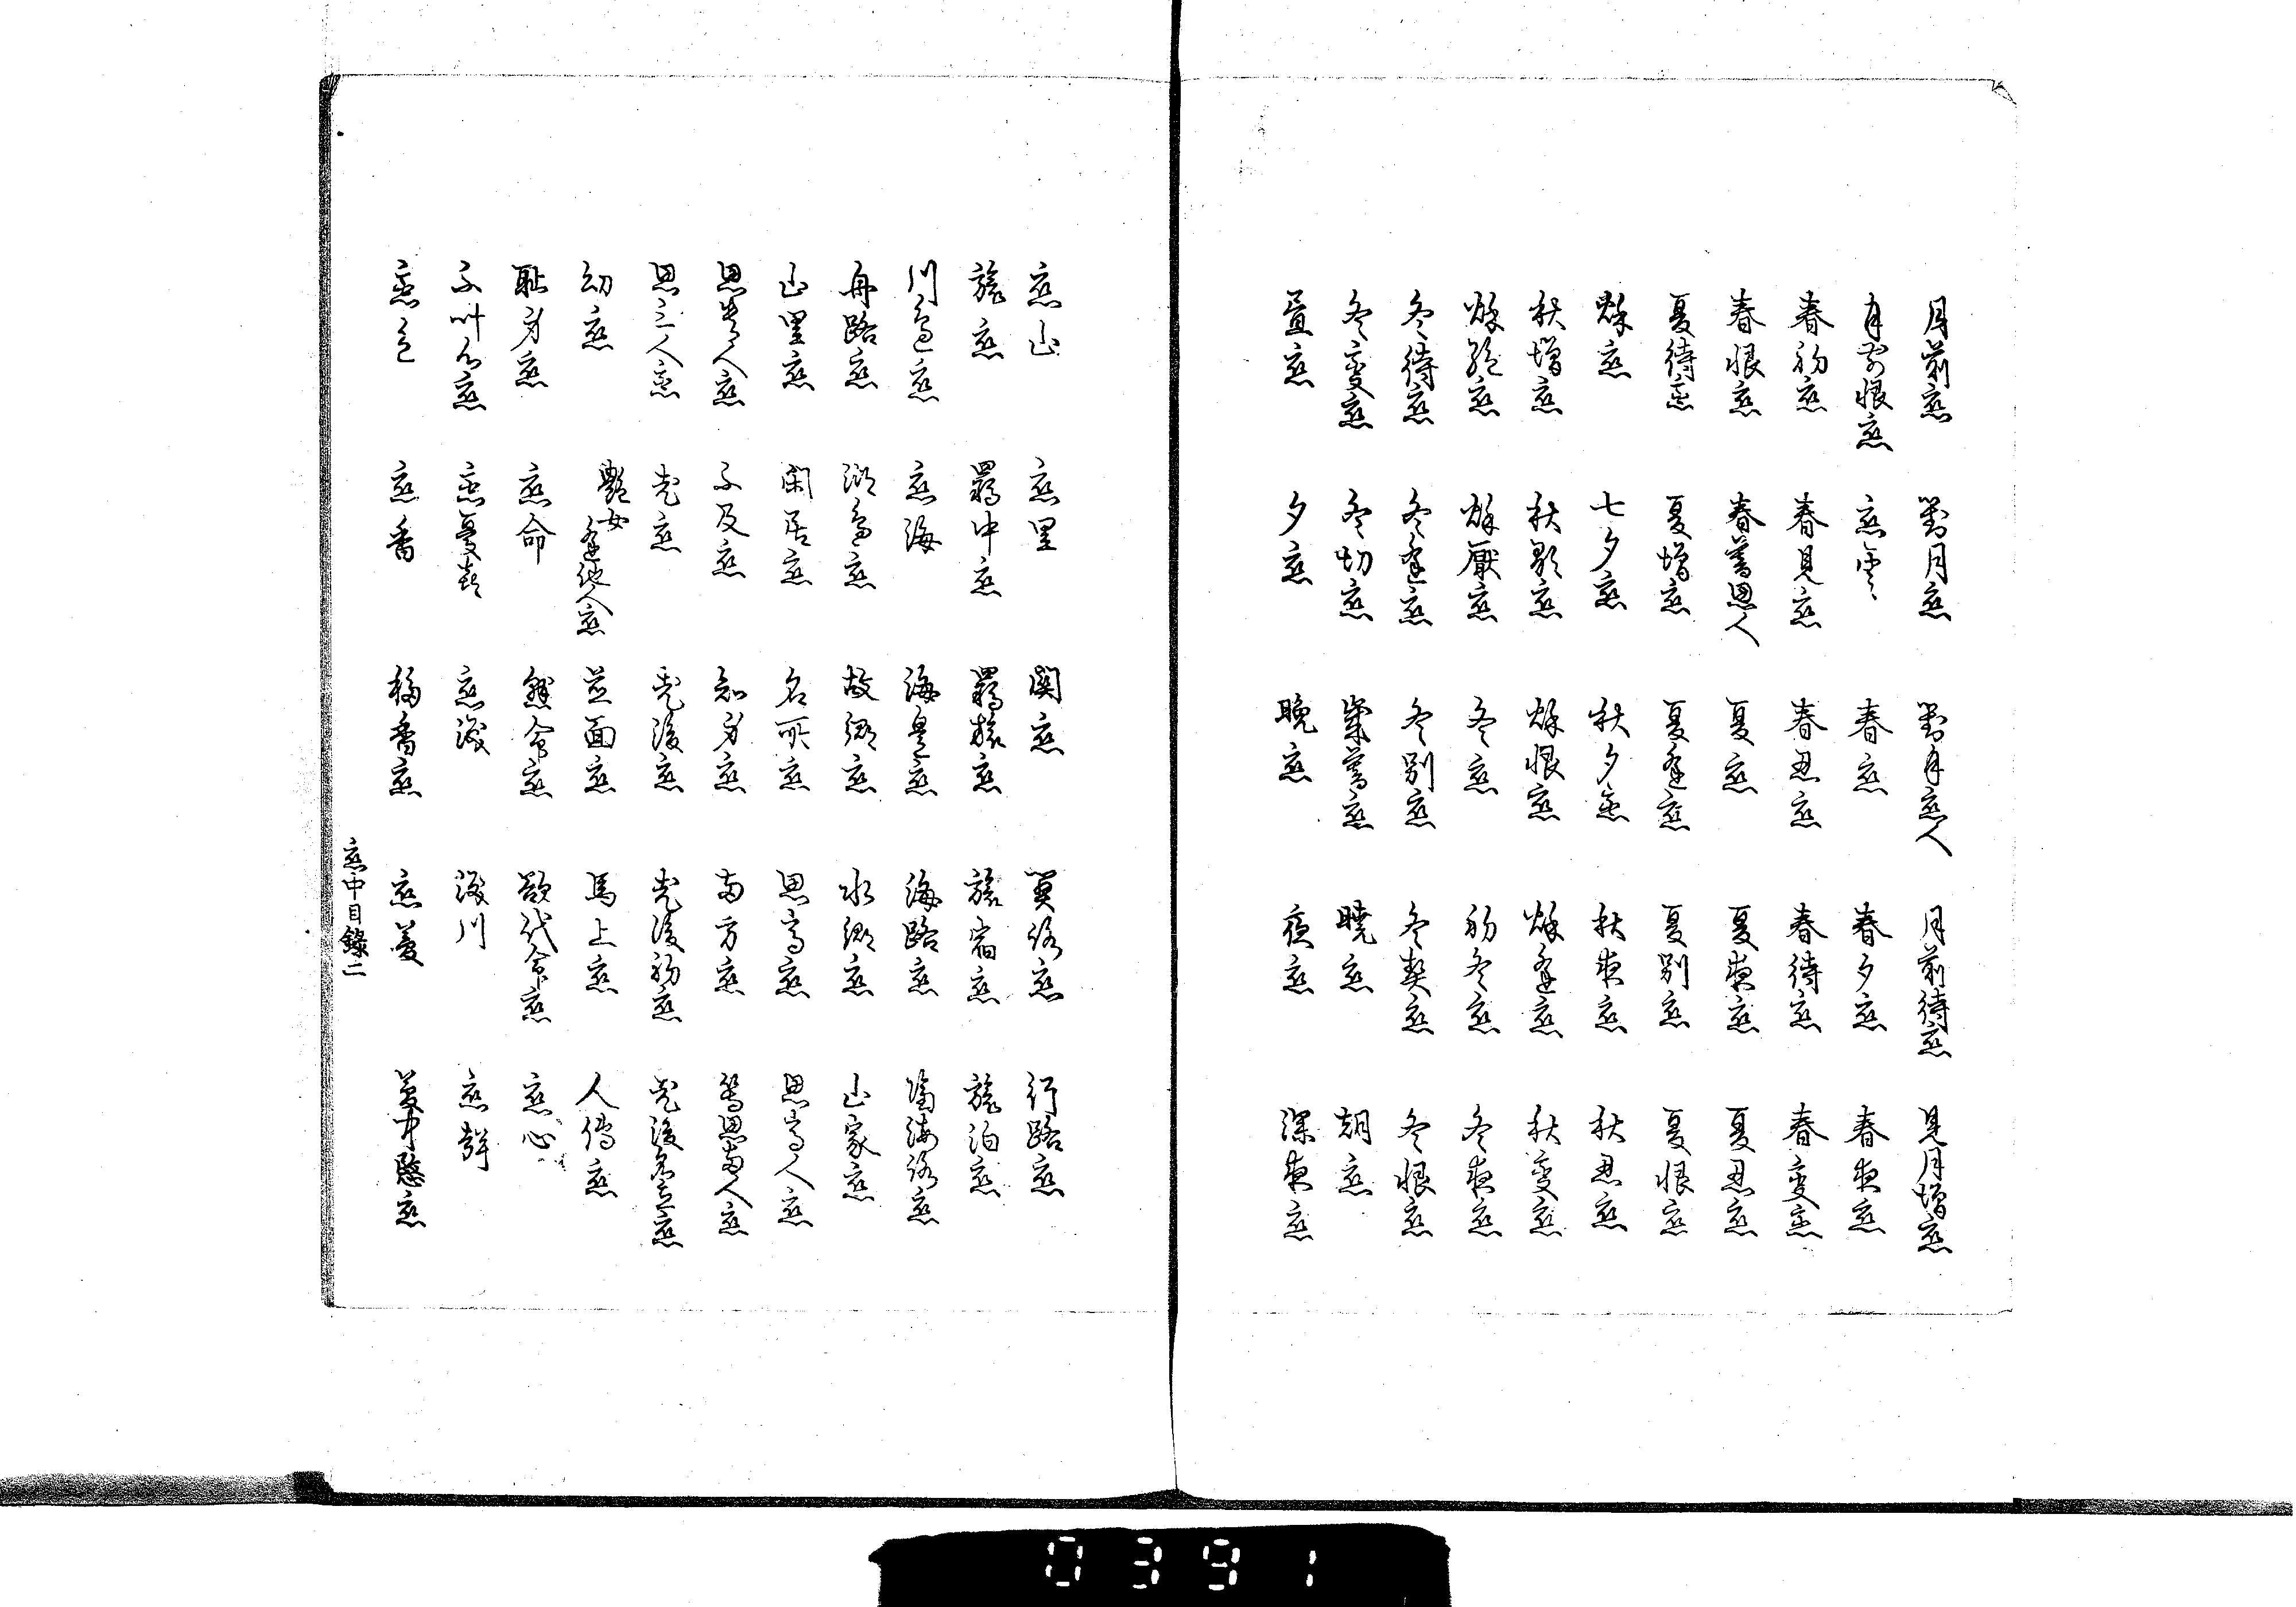 月前恋 對月恋 對月恋人 月前待恋 見月増恋
月前恨恋 恋雲 春恋 春夕恋 春夜恋
春初恋 春見恋 春忍恋 春待恋 春変恋
春恨恋 春暮思人 夏恋 夏夜恋 夏忍恋
夏待恋 夏増恋 夏逢恋 夏別恋 夏恨恋
秋恋 七夕恋 秋夕恋 秋夜恋 秋忍恋
秋増恋 秋顕恋 秋恨恋 秋逢恋 秋変恋
秋絶恋 秋厭恋 冬恋 初冬恋 冬夜恋
冬待恋 冬逢恋 冬別恋 冬契恋 冬恨恋
冬変恋 冬切恋 歳暮恋 暁恋 朝恋
昼恋 夕恋 晩恋 夜恋 深夜恋
恋山 恋里 関恋 関路恋 行路恋
旅恋 羇中恋 羇旅恋 旅宿恋 旅泊恋
川邊恋 恋海 海邊恋 海路恋 隔海路恋
舟路恋 湖邊恋 故郷恋 水郷恋 山家恋
山里恋 閑居恋 名所恋 思高恋 思高人恋
思貴人恋 不及恋 知身恋 両方恋 等思両人恋
思三人恋 老恋 老後恋 老後初恋 老後名立恋
幼恋 艶女逢他人恋 並面恋 馬上恋 人傳恋
恥身恋 恋命 契命恋 欲代命恋 恋心
不叶心恋 恋憂喜 恋涙 涙川 恋聲
恋色 恋香 移香恋 恋夢 夢中愁恋
恋中目録二
0391